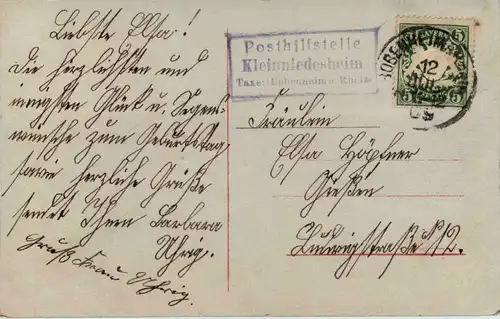 Liebste Elsa!
Die herzlichsten und
innigsten Glück u. Segens-
wünsche zum Geburtstag
sowie herzliche Grüße
sendet Ihnen Barbara
Uhrig.
Gruß Frau Uhrig.
Posthilfstelle
Kleinniedesheim
Taxe: Bobenheim a. Rhein
5 5
BOBENHEIM
12
09
Fräulein
Elsa Höpfner
Gießen
Ludwigstraße No 12.